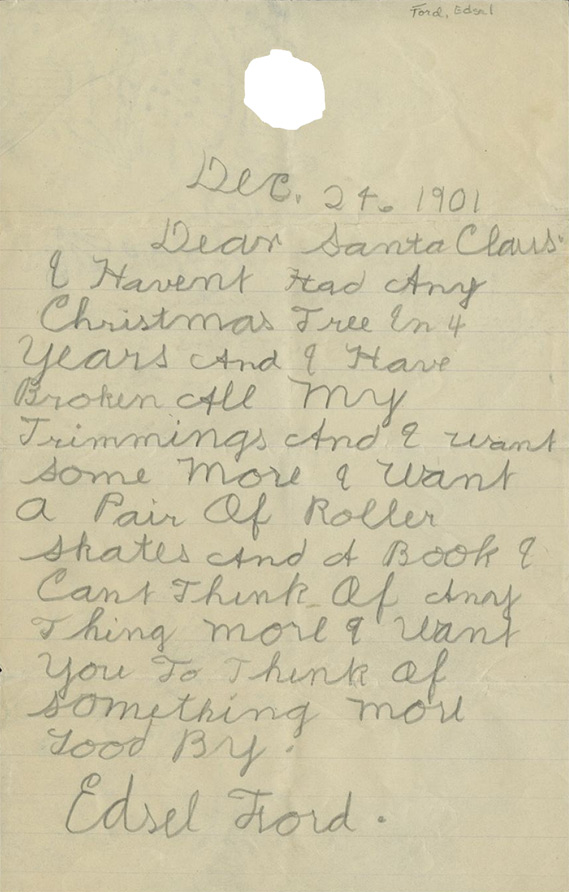 Ford, Edsel
Dec. 24. 1901
Dear Santa Claus
I Havent Had Any
Christmas Tree In 4
Years And I Have
Broken All My
Trimmings And I want
Some More I Want
A Pair Of Roller
Skates And A Book I
Cant Think Of Any
Thing More I Want
You To Think Of
Something More
Good By.
Edsel Ford.